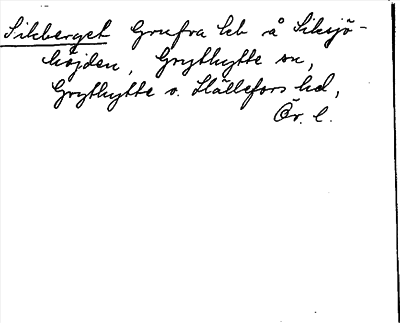 Silberget Grufva hb å Siksjö-
höjden, Grythytte sn,
Grythytte o. Hällefors hd,
Ör. l.